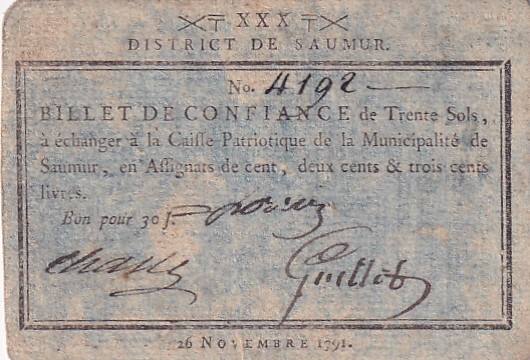 XXX
DISTRICT DE SAUMUR.
No. 4192
BILLET DE CONFIANCE de Trente Sols,
à échanger à la Caisse Patriotique de la Municipalité de
Saumur, en Assignats de cent, deux cents & trois cents
livres.
Bon pour 30 s.
Guillot
26 NOVEMBRE 1791.